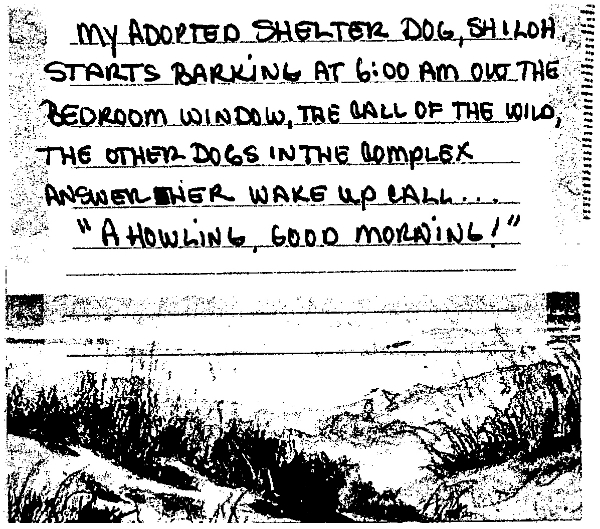 MY ADOPTED SHELTER DOG, SHILOH,
STARTS BARKING AT 6:00 AM OUT THE
BEDROOM WINDOW, THE CALL OF THE WILD,
THE OTHER DOGS IN THE COMPLEX
ANSWER HER WAKE UP CALL...
"A HOWLING, GOOD MORNING!"